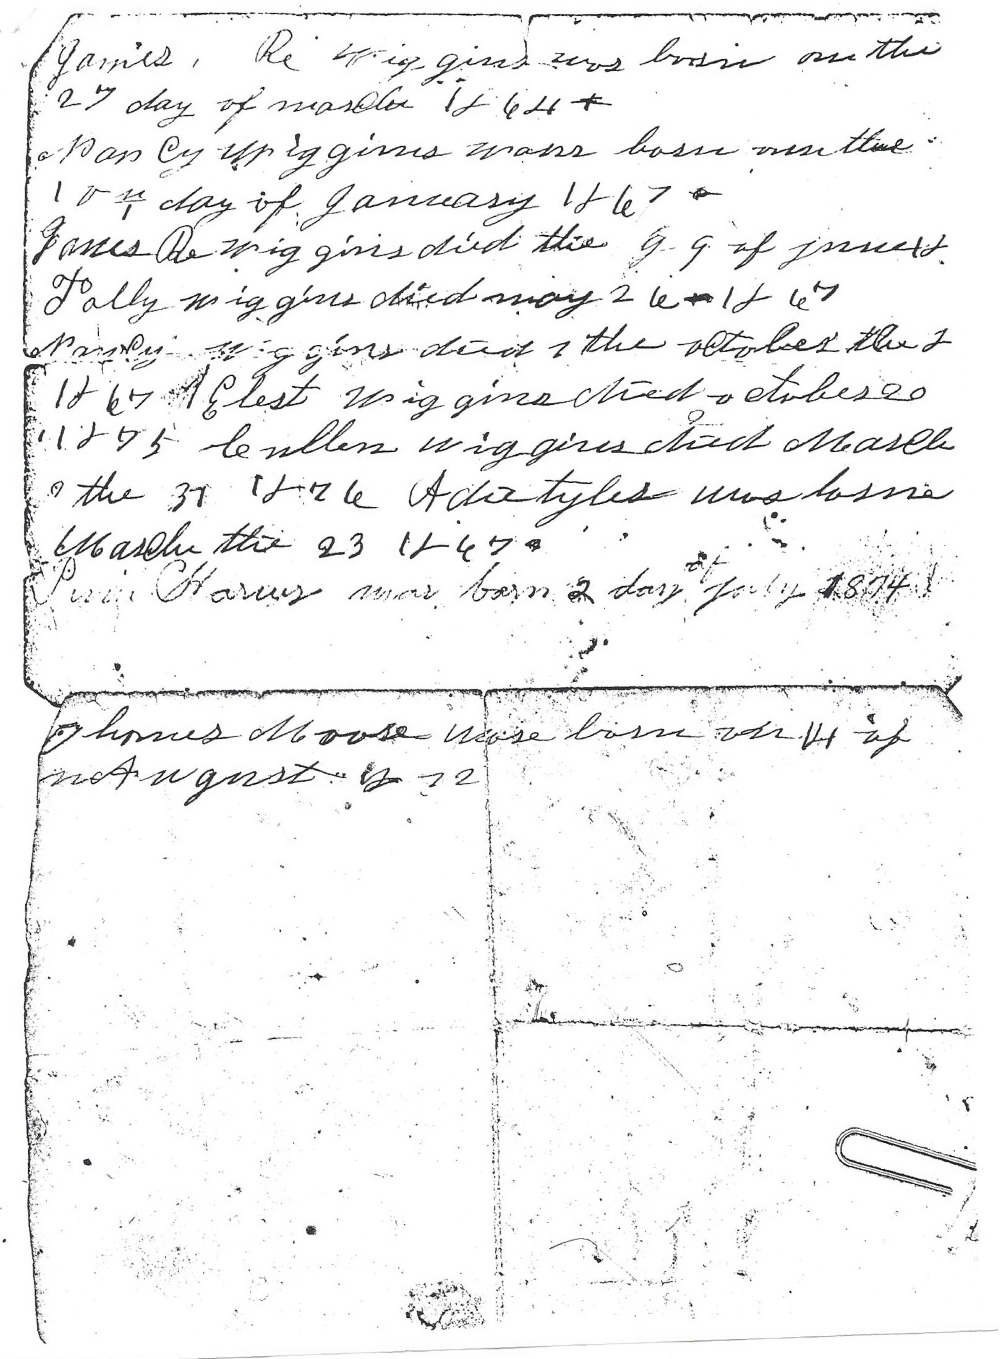 James. Re Wiggins was born on the
27 day of march 1864
Nancy Wiggins wass born on the
10 day of January 1867
James Re Wiggins died the 9 9 of
Polly Wiggins died may 26 1867
Nancy Wiggins died the october the 8
1867 Elest Wiggins died october 20
1875 Cullen Wiggins died March
the 31 1876 Ader tyler was borne
March the 23 1867
was born 2 day of July 1874
Thomes Moore wase born on 14 of
August 1872